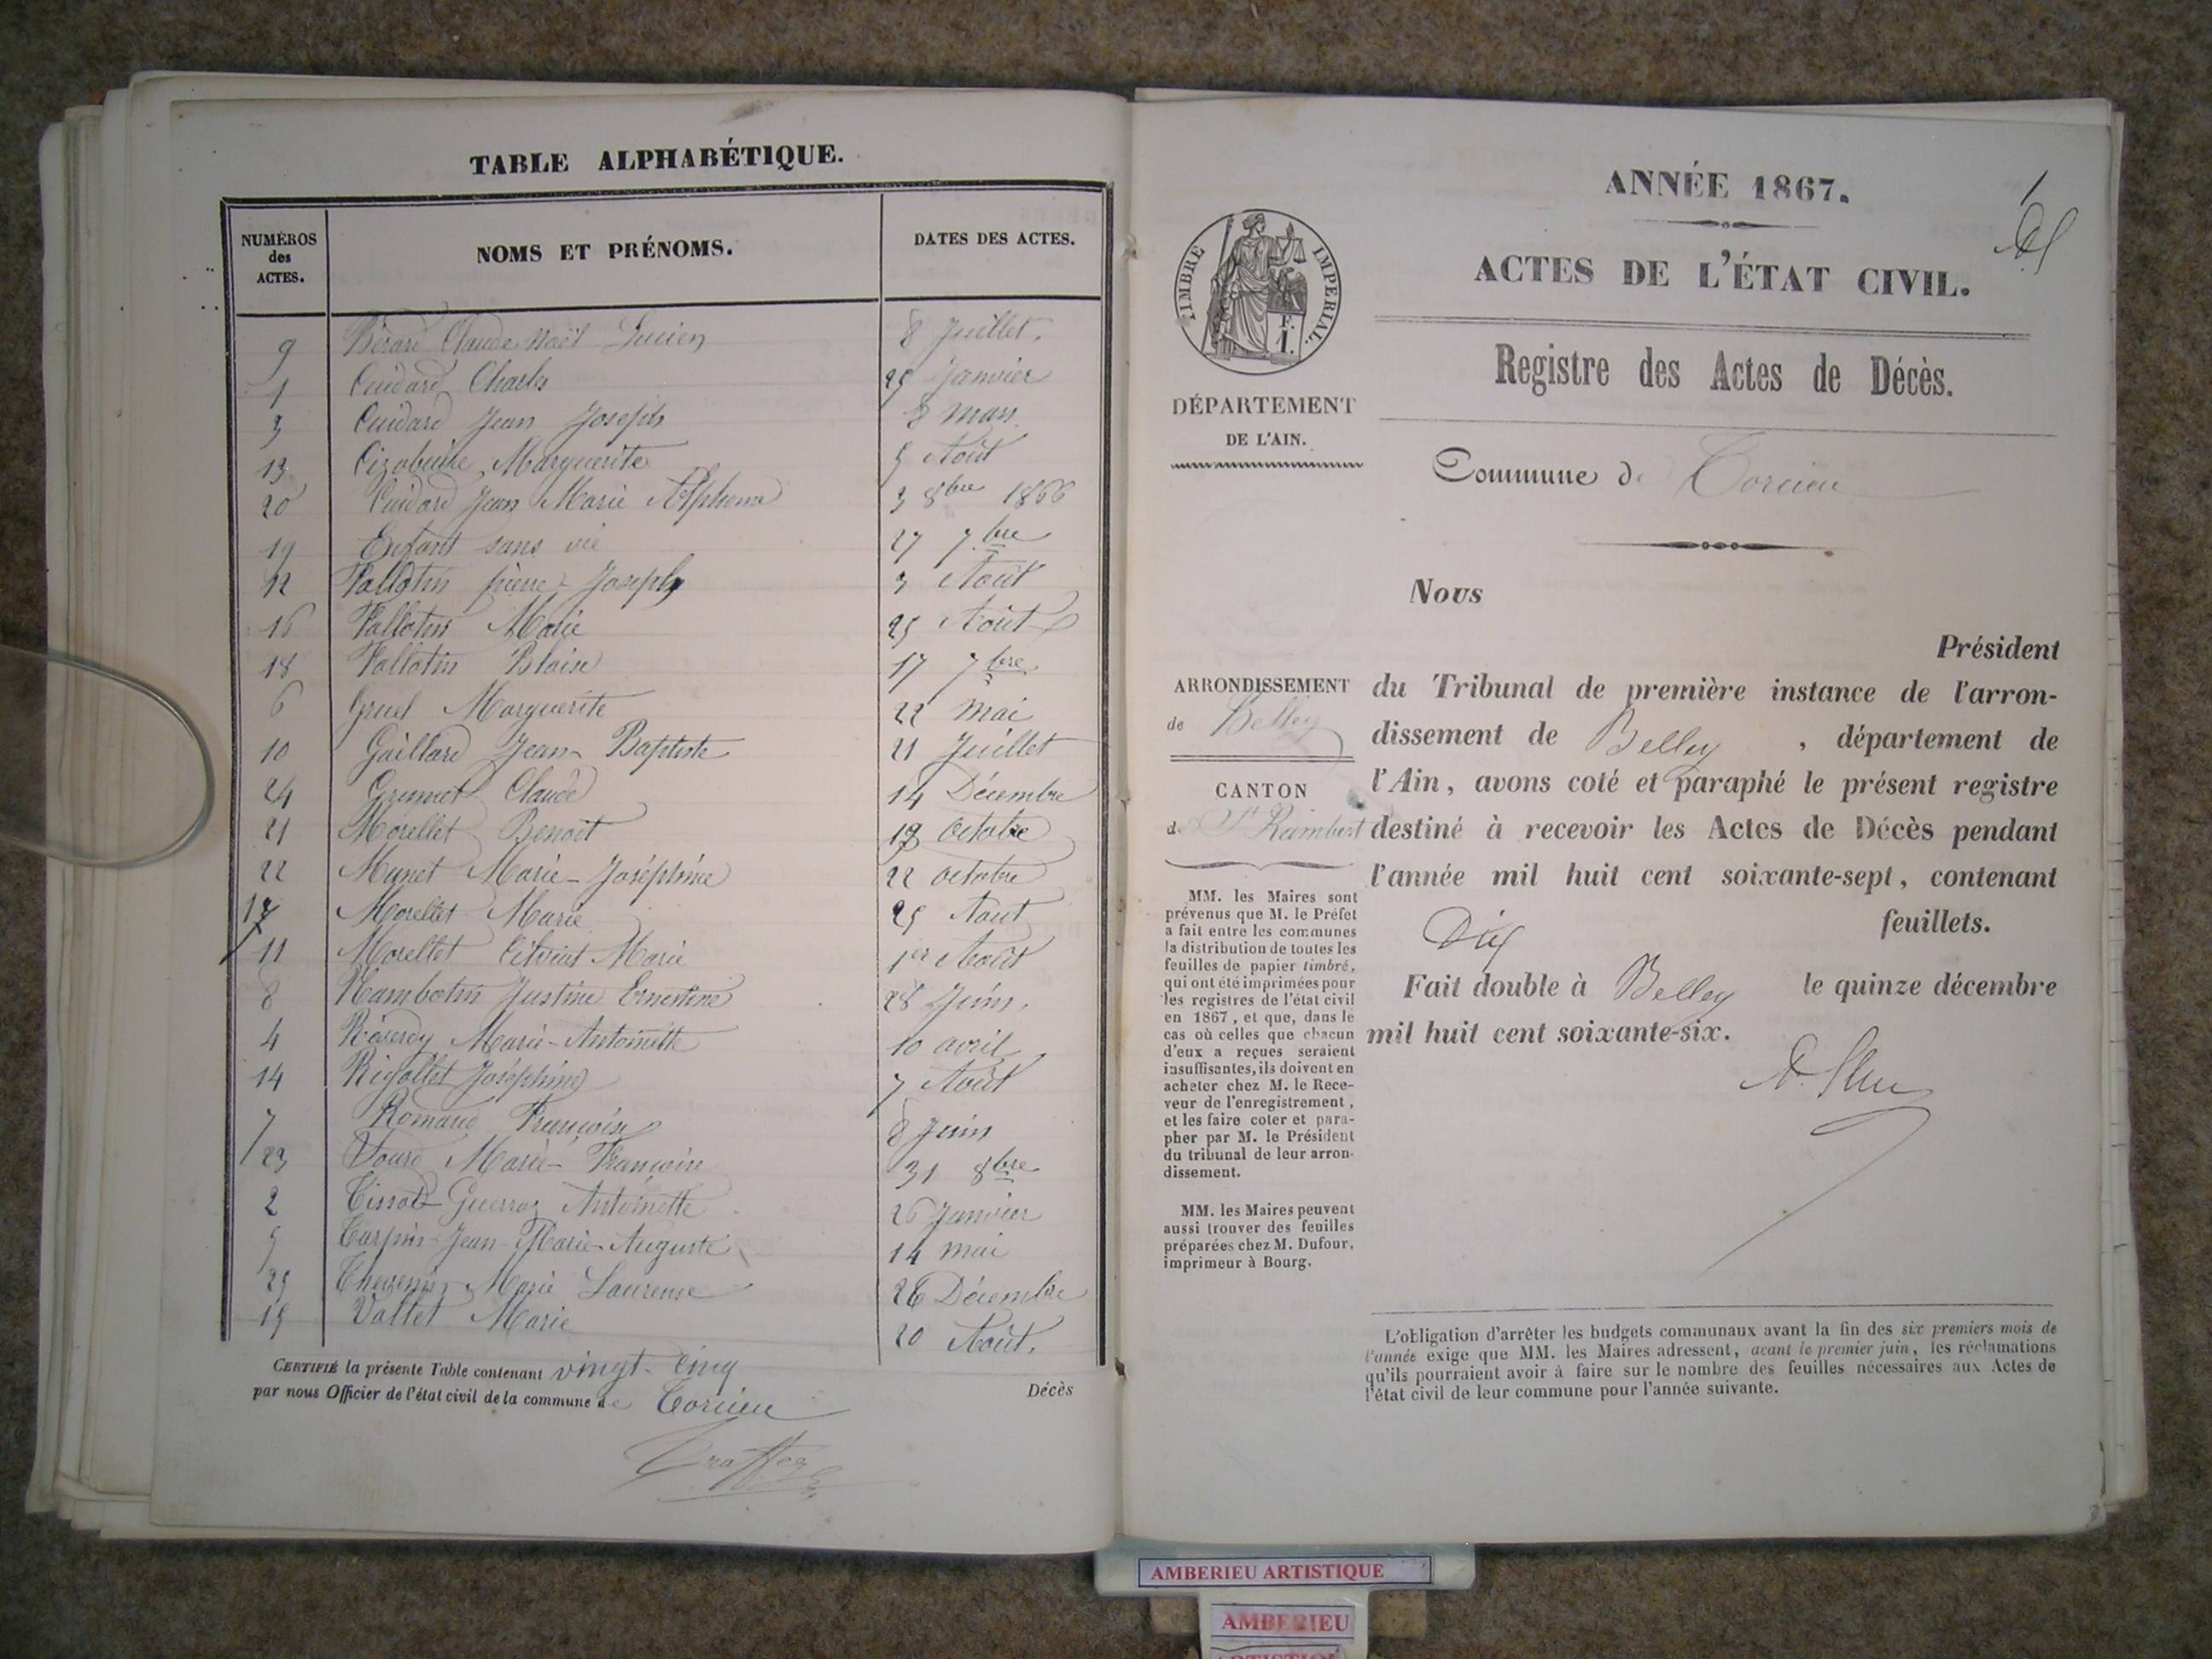 TABLE ALPHABÉTIQUE.
NUMÉROS des ACTES. NOMS ET PRÉNOMS. DATES DES ACTES.
9 Bérard Claude Noël Lucien 8 Juillet.
1 Cuidard Charles 25 Janvier
3 Cuidard Jean Joseph 8 mars
13 Marguerite 5 Août
20 Cuidard Jean Marie Alphonse 3 8bre 1866
19 Enfant sans vie 27 7bre
12 Vallotin pierre Joseph 3 Août
16 Vallotin Marie 25 Août
18 Vallotin Blaise 17 7bre
6 Gruel Marguerite 22 mai
10 Gaillard Jean Baptiste 21 Juillet
24 Grumet Claude 14 Décembre
21 Morellet Benoit Octobre
22 Munet Marie-Joséphine 22 octobre
17 Morellet Marie 25 Aout
11 Morellet Marie 1er Août
8 Justine Ernestine 28 Juin.
4 Marie-Antoinette 10 avril
14 Rigollet Joséphine 7 Août
7 Romand Françoise 8 Juin
23 Marie-Françoise 31 8bre
2 Tissot Guerraz Antoinette 26 Janvier
5 Jean-Marie-Auguste 14 mai
25 Thevenin Marie Laurence 26 Décembre
15 Vallet Marie 20 Août.
CERTIFIÉ la présente Table contenant vingt-cinq
Décès
par nous Officier de l'état civil de la commune de Torcieu
ANNÉE 1867.
1
ACTES DE L'ÉTAT CIVIL.
TIMBRE IMPÉRIAL.
Registre des Actes de Décès.
DÉPARTEMENT
DE L'AIN.
Commune de Torcieu
Nous
Président
ARRONDISSEMENT
de Belley
CANTON
de St Rambert
du Tribunal de première instance de l'arron-
dissement de Belley, département de
l'Ain, avons coté et paraphé le présent registre
destiné à recevoir les Actes de Décès pendant
l'année mil huit cent soixante-sept, contenant
Dix feuillets.
Fait double à Belley le quinze décembre
mil huit cent soixante-six.
MM. les Maires sont
prévenus que M. le Préfet
a fait entre les communes
la distribution de toutes les
feuilles de papier timbré,
qui ont été imprimées pour
les registres de l'état civil
en 1867, et que, dans le
cas où celles que chacun
d'eux a reçues seraient
insuffisantes, ils doivent en
acheter chez M. le Rece-
veur de l'enregistrement,
et les faire coter et para-
pher par M. le Président
du tribunal de leur arron-
dissement.
MM. les Maires peuvent
aussi trouver des feuilles
préparées chez M. Dufour,
imprimeur à Bourg.
L'obligation d'arrêter les budgets communaux avant la fin des six premiers mois de
l'année exige que MM. les Maires adressent, avant le premier juin, les réclamations
qu'ils pourraient avoir à faire sur le nombre des feuilles nécessaires aux Actes de
l'état civil de leur commune pour l'année suivante.
AMBERIEU ARTISTIQUE
AMBERIEU
ARTISTIQUE